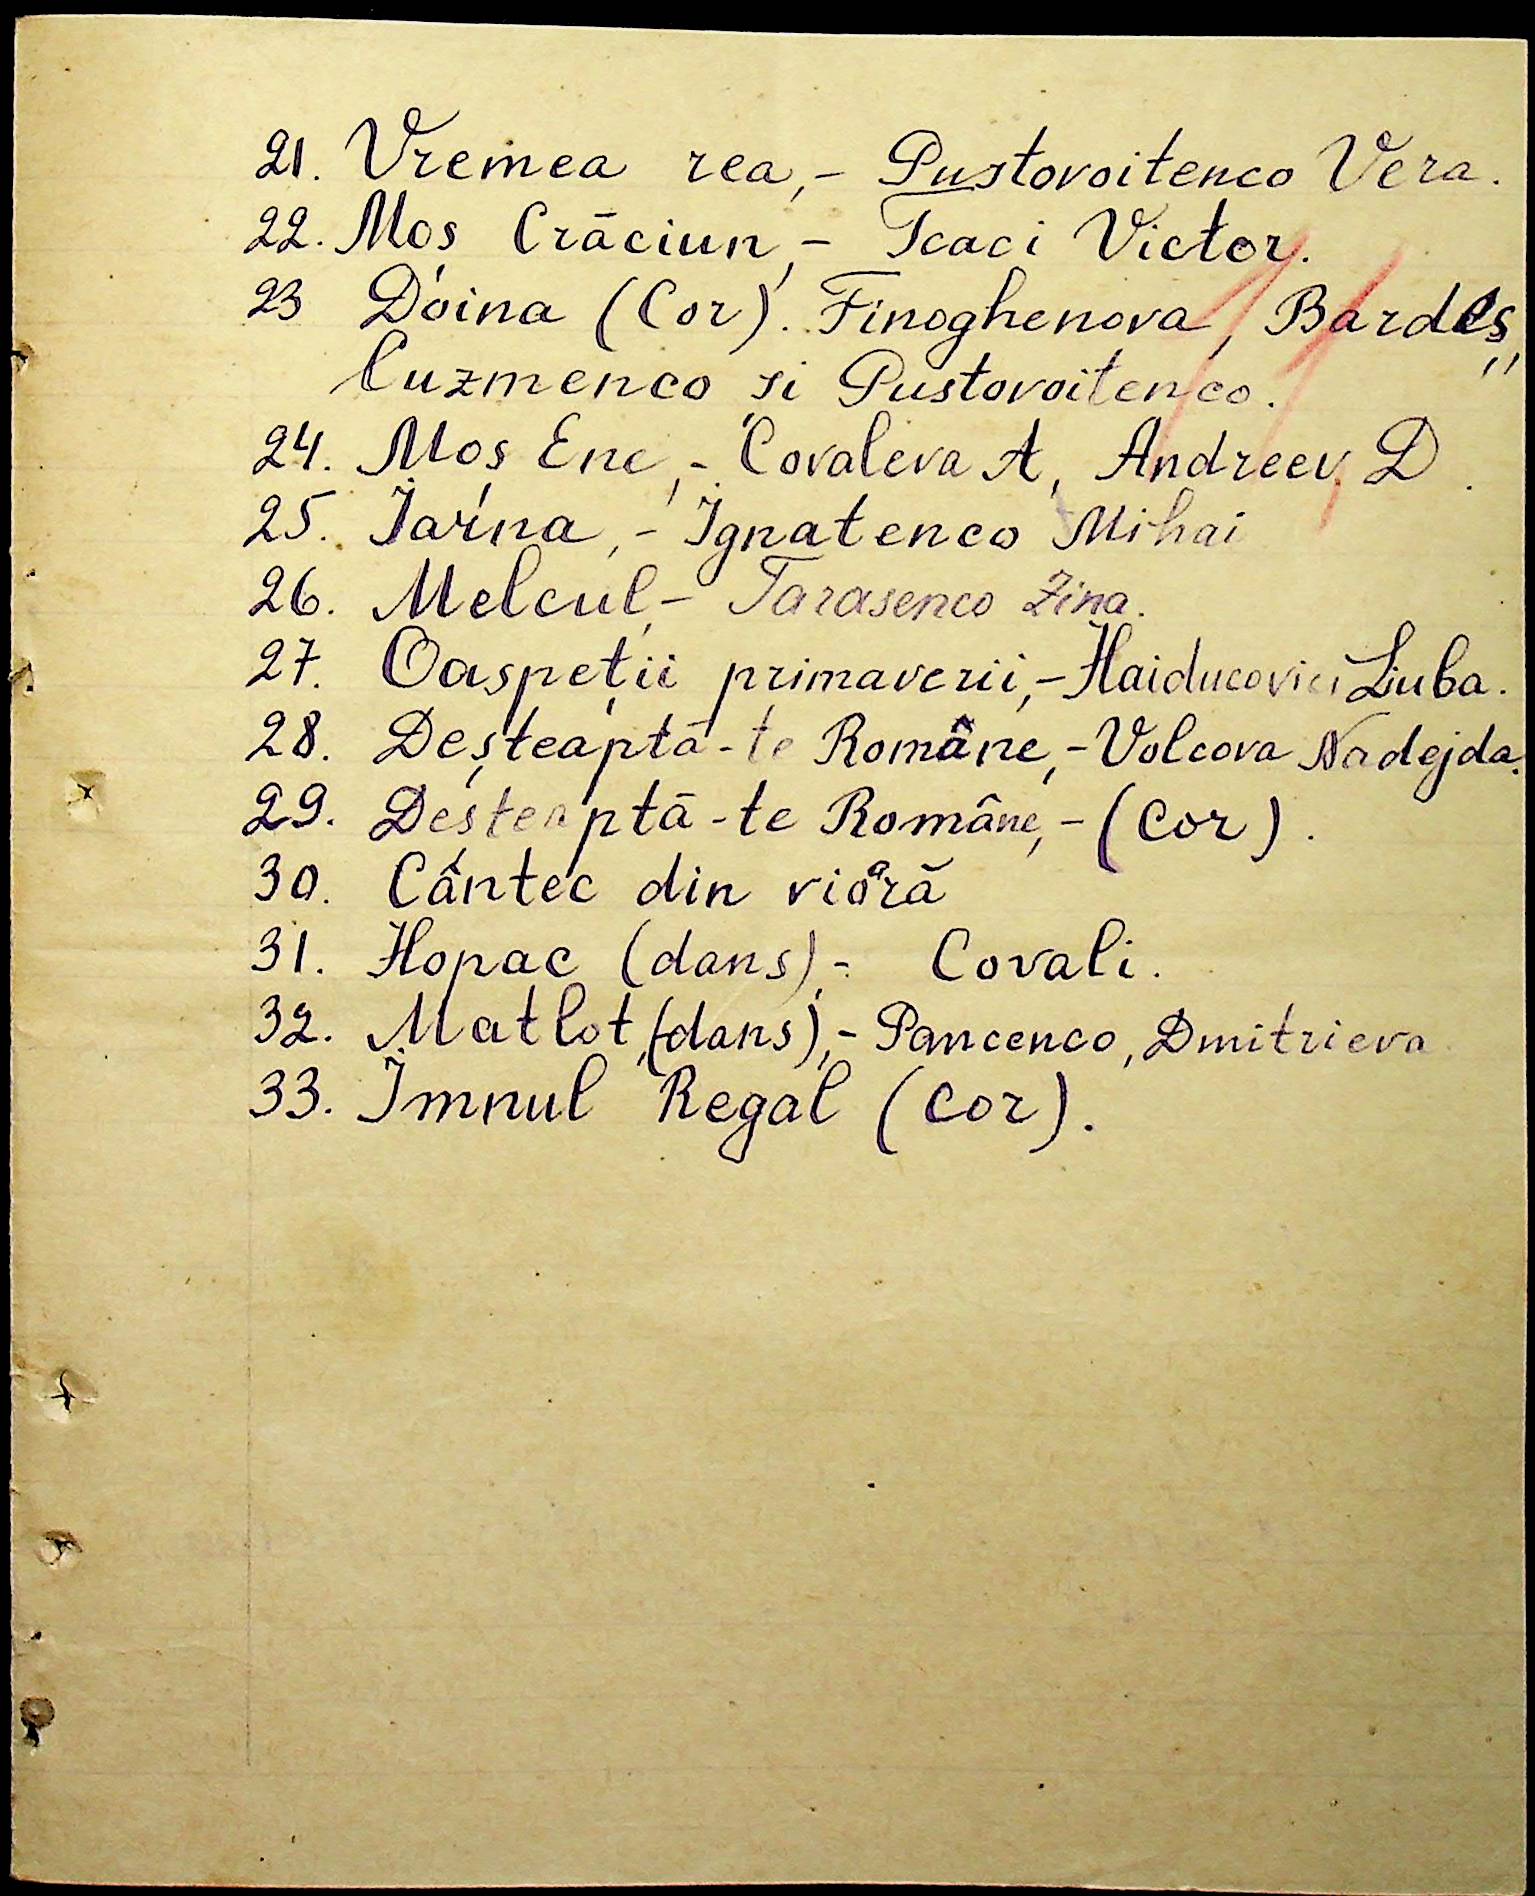 21. Vremea rea, - Pustovoitenco Vera.
22. Moș Crăciun, - Tcaci Victor.
23 Doina (Cor). Finoghenova, Bardeș,
Cuzmenco și Pustovoitenco.
24. Moș Ene, - Covaleva A, Andreev, D.
25. Iarna, - Ignatenco Mihai
26. Melcul, - Tarasenco Zina.
27. Oaspeții primaverii, - Haiducovici Liuba.
28. Deșteaptă-te Române, - Volcova Nadejda.
29. Deșteaptă-te Române, - (Cor).
30. Cântec din vioară
31. Hopac (dans), - Covali.
32. Matlot, (dans), - Pancenco, Dmitrieva
33. Imnul Regal (Cor).